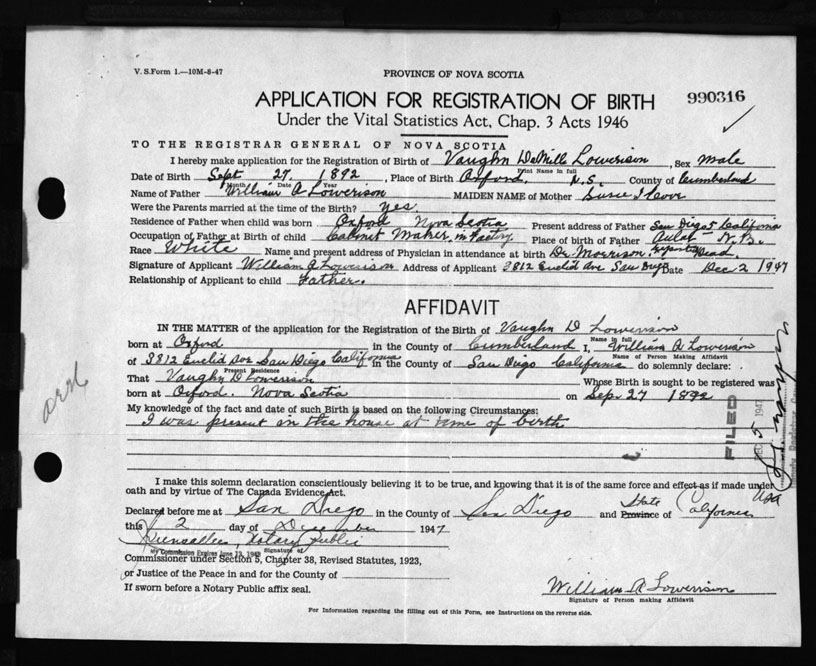 V. S. Form 1.—10M-8-47
PROVINCE OF NOVA SCOTIA
APPLICATION FOR REGISTRATION OF BIRTH
990316
Under the Vital Statistics Act, Chap. 3 Acts 1946
TO THE REGISTRAR GENERAL OF NOVA SCOTIA
I hereby make application for the Registration of Birth of Vaughn DeMille Lowerison, Sex male
Print Name in full
Date of Birth Sept 27. 1892, Place of Birth Oxford, N.S. County of Cumberland
Month Date Year
Name of Father William A Lowerison MAIDEN NAME of Mother Susie
Were the Parents married at the time of the Birth? Yes.
Residence of Father when child was born Oxford Nova Scotia Present address of Father San Diego 5 California
Occupation of Father at Birth of child Cabinet Maker, in Factory. Place of Birth of Father Aulac N.B.
Race White Name and present address of Physician in attendance at birth Dr Morrison. Dead.
Signature of Applicant William A Lowerison Address of Applicant 3812 Euclid Ave San Diego Date Dec 2 1947
Relationship of Applicant to child Father.
AFFIDAVIT
IN THE MATTER of the application for the Registration of the Birth of Vaughn D Lowerison
Name in full
born at Oxford in the County of Cumberland I, William A Lowerison
Name of Person Making Affidavit
of 3812 Euclid Ave San Diego California in the County of San Diego California do solemnly declare:
Present Residence
That Vaughn D Lowerison Whose Birth is sought to be registered was
born at Oxford. Nova Scotia on Sep 27 1892
My knowledge of the fact and date of such Birth is based on the following Circumstances:
I was present in the house at time of birth
FILED
DEC 5 1947
I make this solemn declaration conscientiously believing it to be true, and knowing that it is of the same force and effect as if made under
oath and by virtue of The Canada Evidence Act.
Declared before me at San Diego in the County of San Diego and Province of State California USA
this 2 day of December 1947
Notary Public
My Commission Expires June 23, Signature of
Commissioner under Section 5, Chapter 38, Revised Statutes, 1923,
or Justice of the Peace in and for the County of
If sworn before a Notary Public affix seal.
William A Lowerison
Signature of Person making Affidavit
For Information regarding the filling out of this Form, see Instructions on the reverse side.